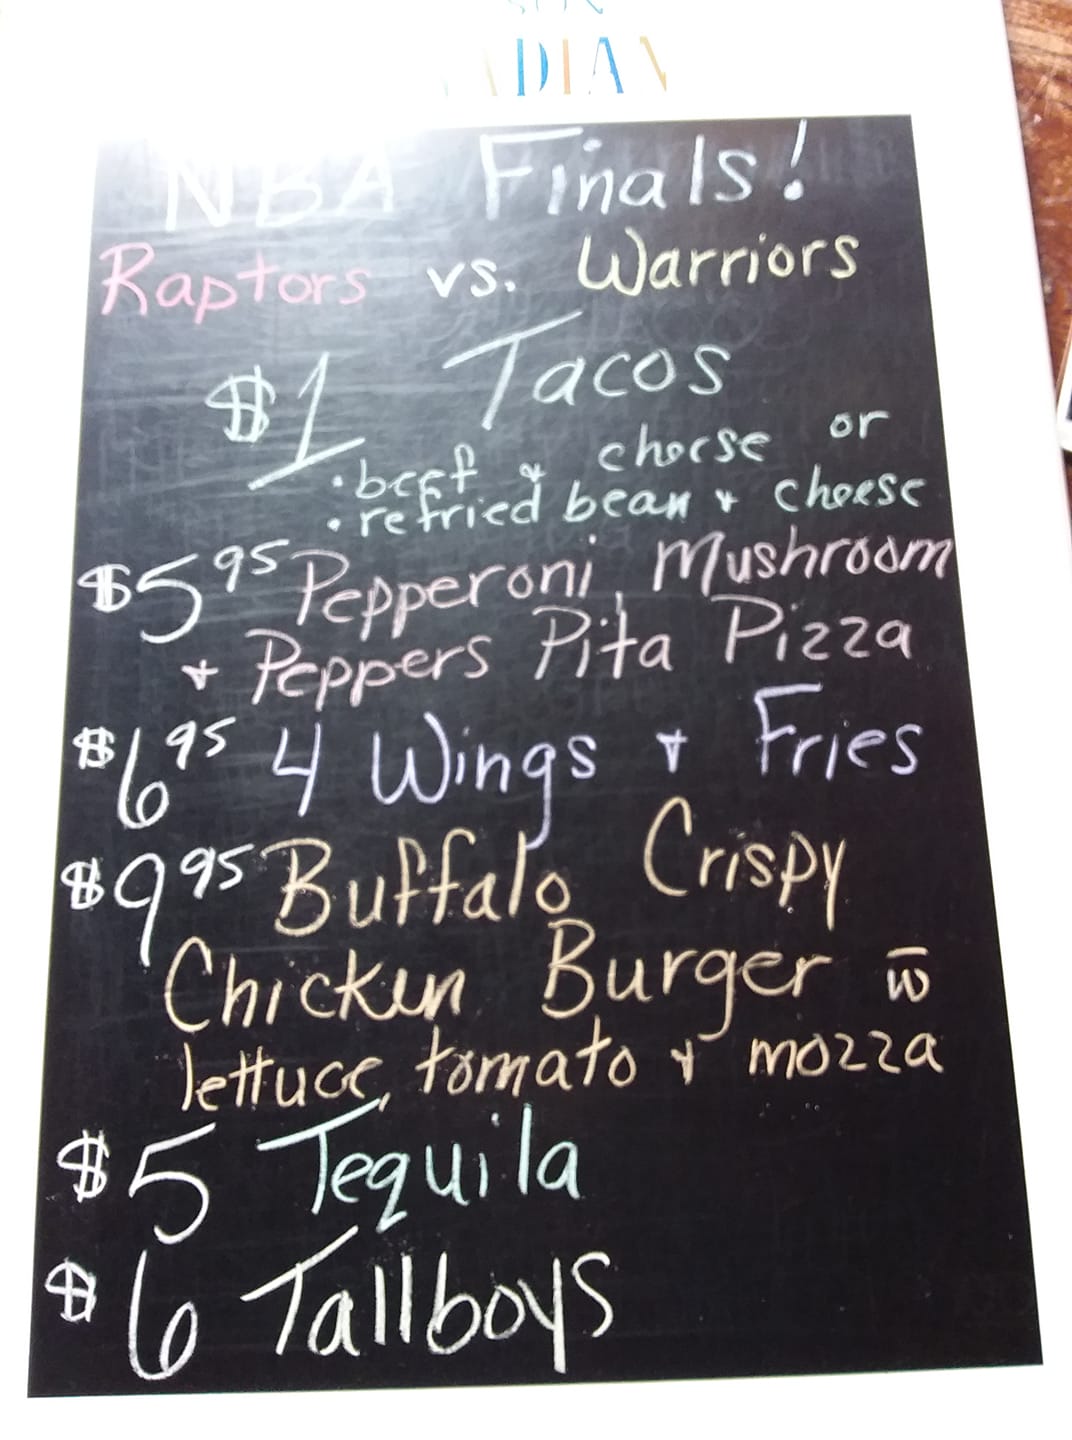 NBA Finals!
Raptors vs. Warriors
$1 Tacos
• beef + cheese or
• refried bean + cheese
$5 95 Pepperoni, Mushroom
+ Peppers Pita Pizza
$6 95 4 Wings + Fries
$9 95 Buffalo Crispy
Chicken Burger w̄
lettuce, tomato + mozza
$5 Tequila
$6 Tallboys